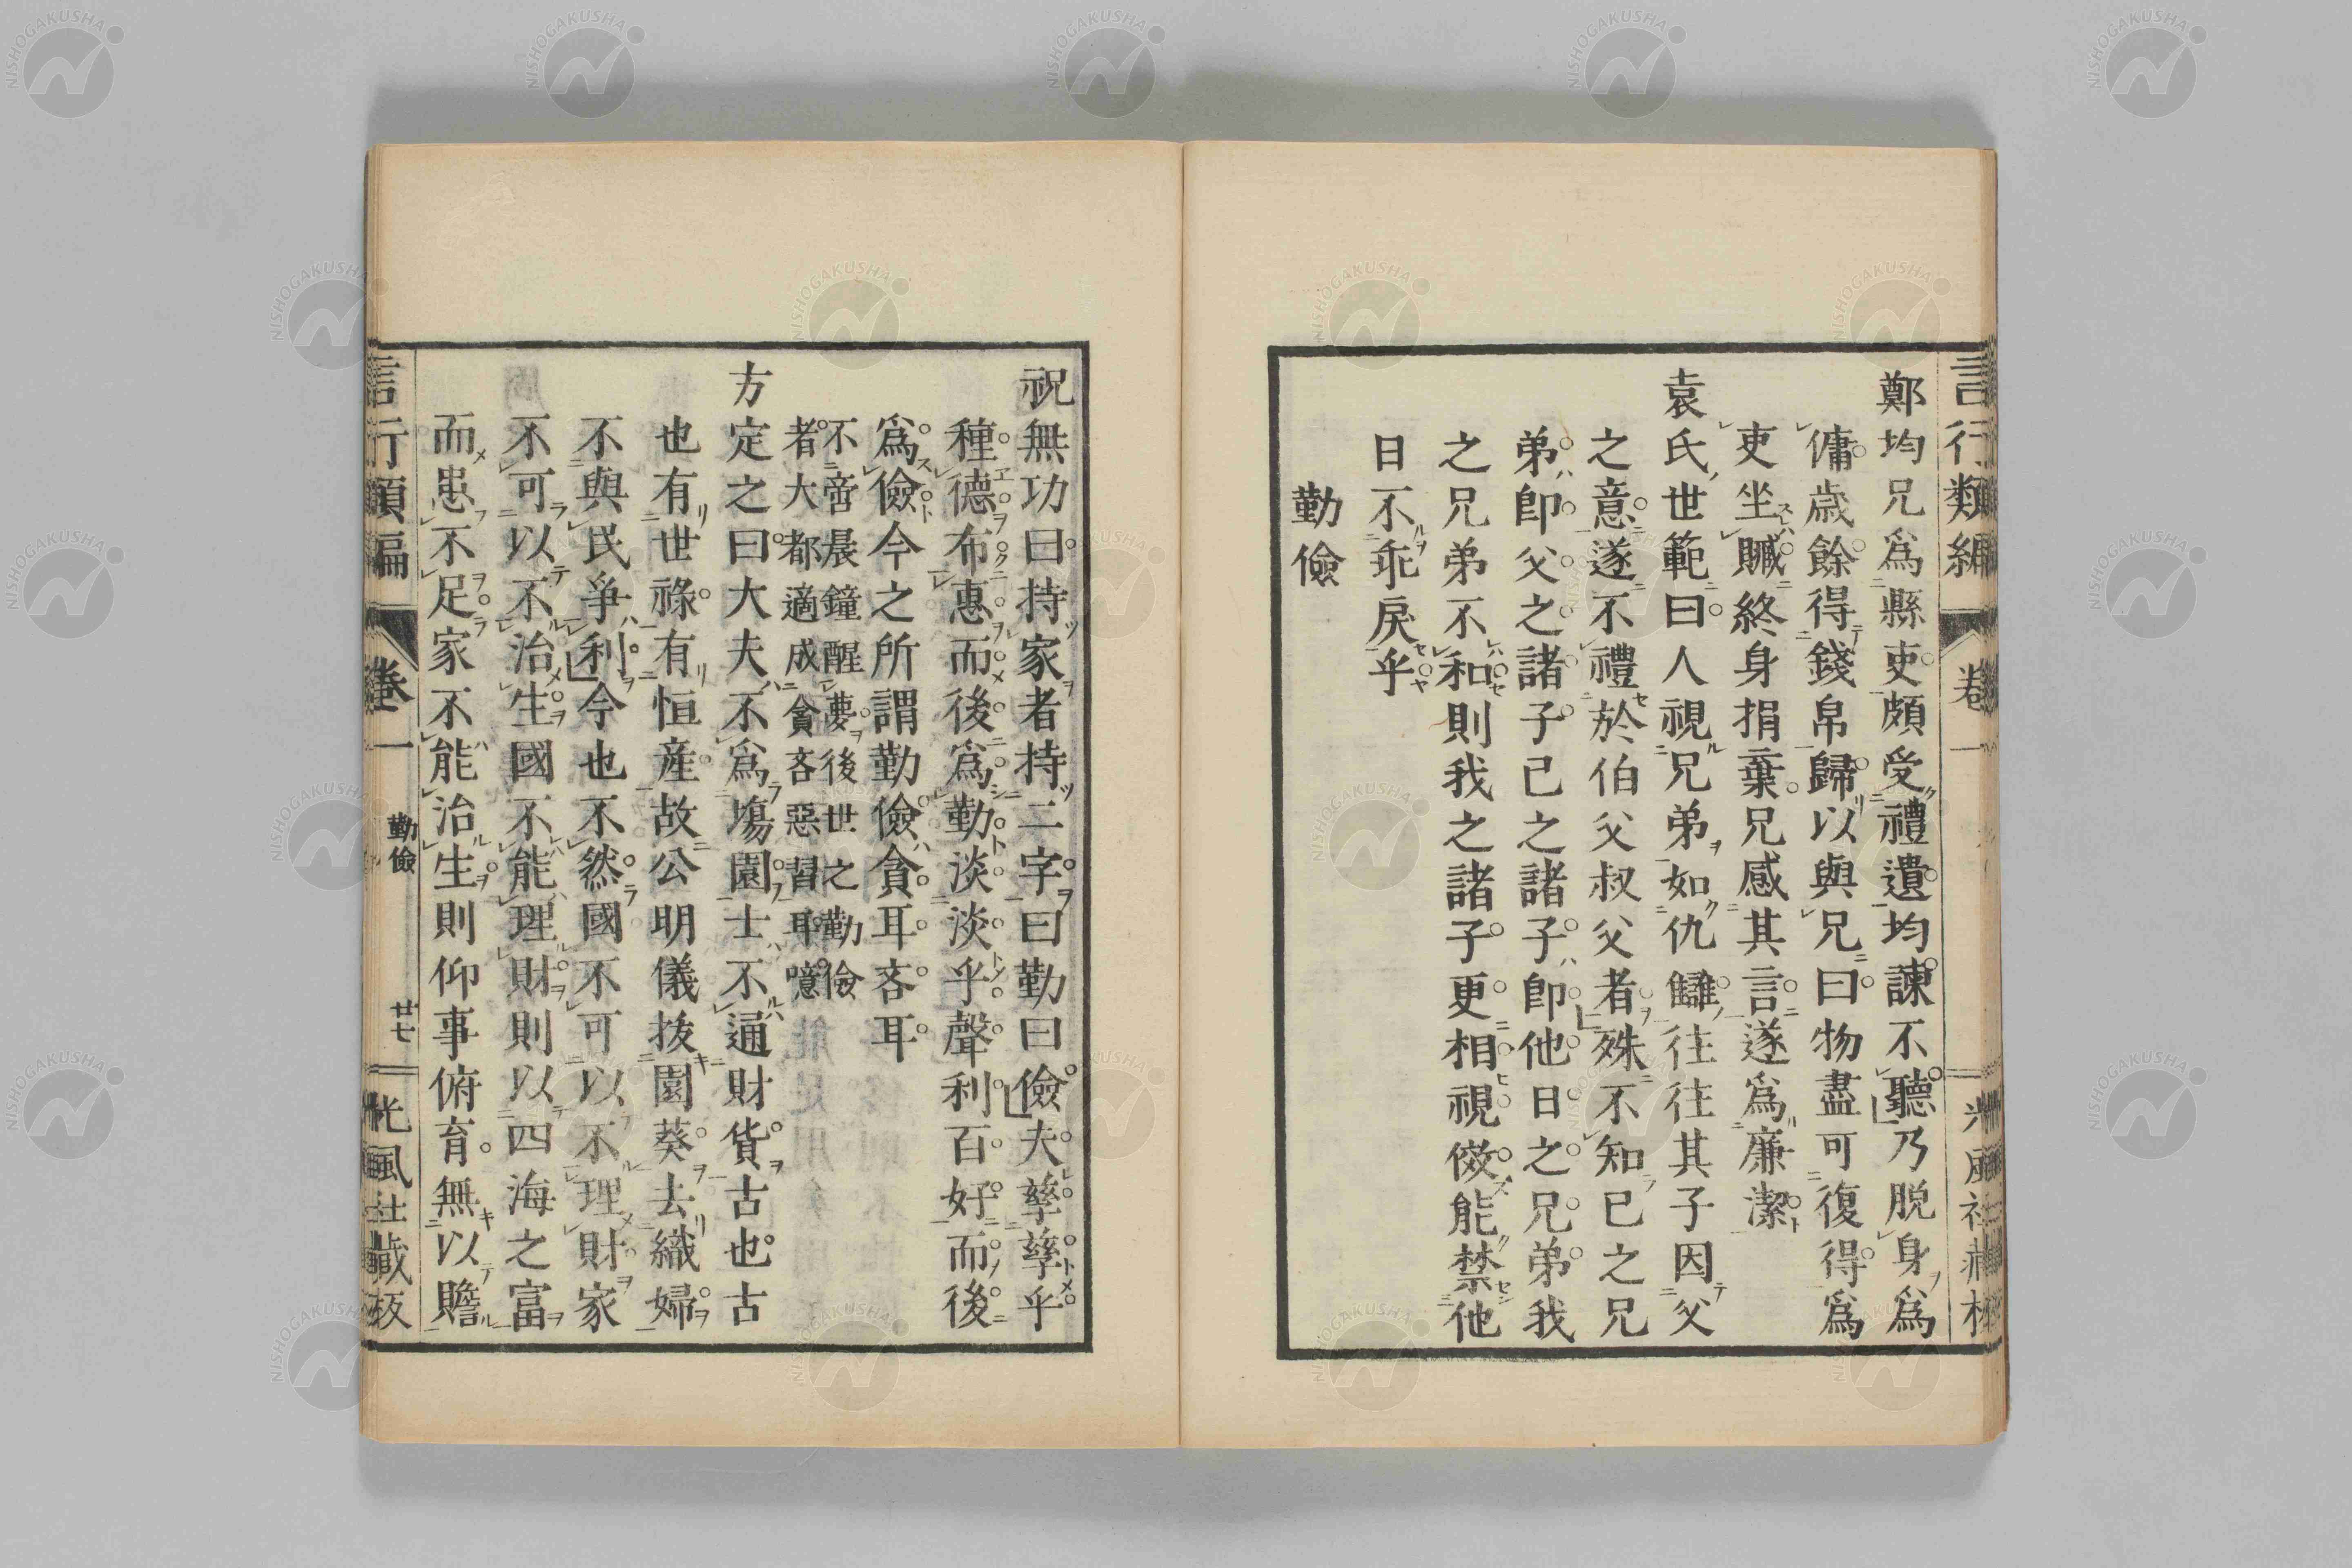 言行類編 卷一 光風社藏板
鄭均兄爲縣吏頗受禮遺均諫不聽乃脱身爲
傭歳餘得錢帛歸以與兄曰物盡可復得爲
吏坐贓終身捐棄兄感其言遂爲廉潔
袁氏世範曰人視兄弟如仇讎往往其子因父
之意遂不禮於伯父叔父者殊不知已之兄
弟卽父之諸子已之諸子卽他日之兄弟我
之兄弟不和則我之諸子更相視傚能禁他
日不乖戻乎
勤儉
祝無功曰持家者持二字曰勤曰儉夫孳孳乎
種德布惠而後爲勤淡淡乎聲利百好而後
爲儉今之所謂勤儉貪耳吝耳
不啻晨鐘醒夢後世之勤儉
者大都適成貪吝惡習耳噫
方定之曰大夫不爲塲園士不通財貨古也古
也有世祿有恒産故公明儀拔園葵去織婦
不與民爭利今也不然國不可以不理財家
不可以不治生國不能理財則以四海之富
而患不足家不能治生則仰事俯育無以贍
言行類編 卷一 勤儉 廿七 光風社藏板
NISHOGAKUSHA